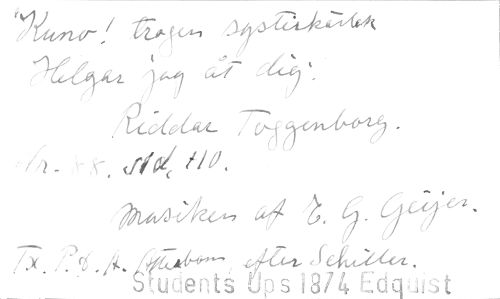 "Kuno! trogen systerkärlek
Helgar jag åt dig."
Riddar Toggenborg.
Nr. 88. sid. 110.
Musiken af E. G. Geijer.
Tx. P. D. A. Atterbom, efter Schiller.
Students Ups 1874 Edquist